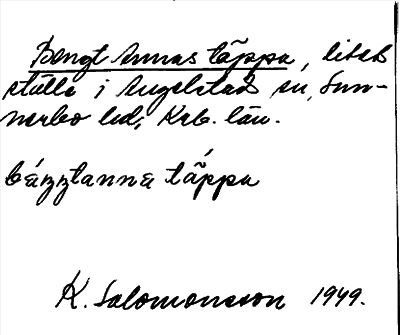 Bengt Annas täppa, litet
ställe i Angelstad sn, Sun-
nerbo hd, Krb. län.
bäŋŋtanna täppa
K. Salomonsson 1949.